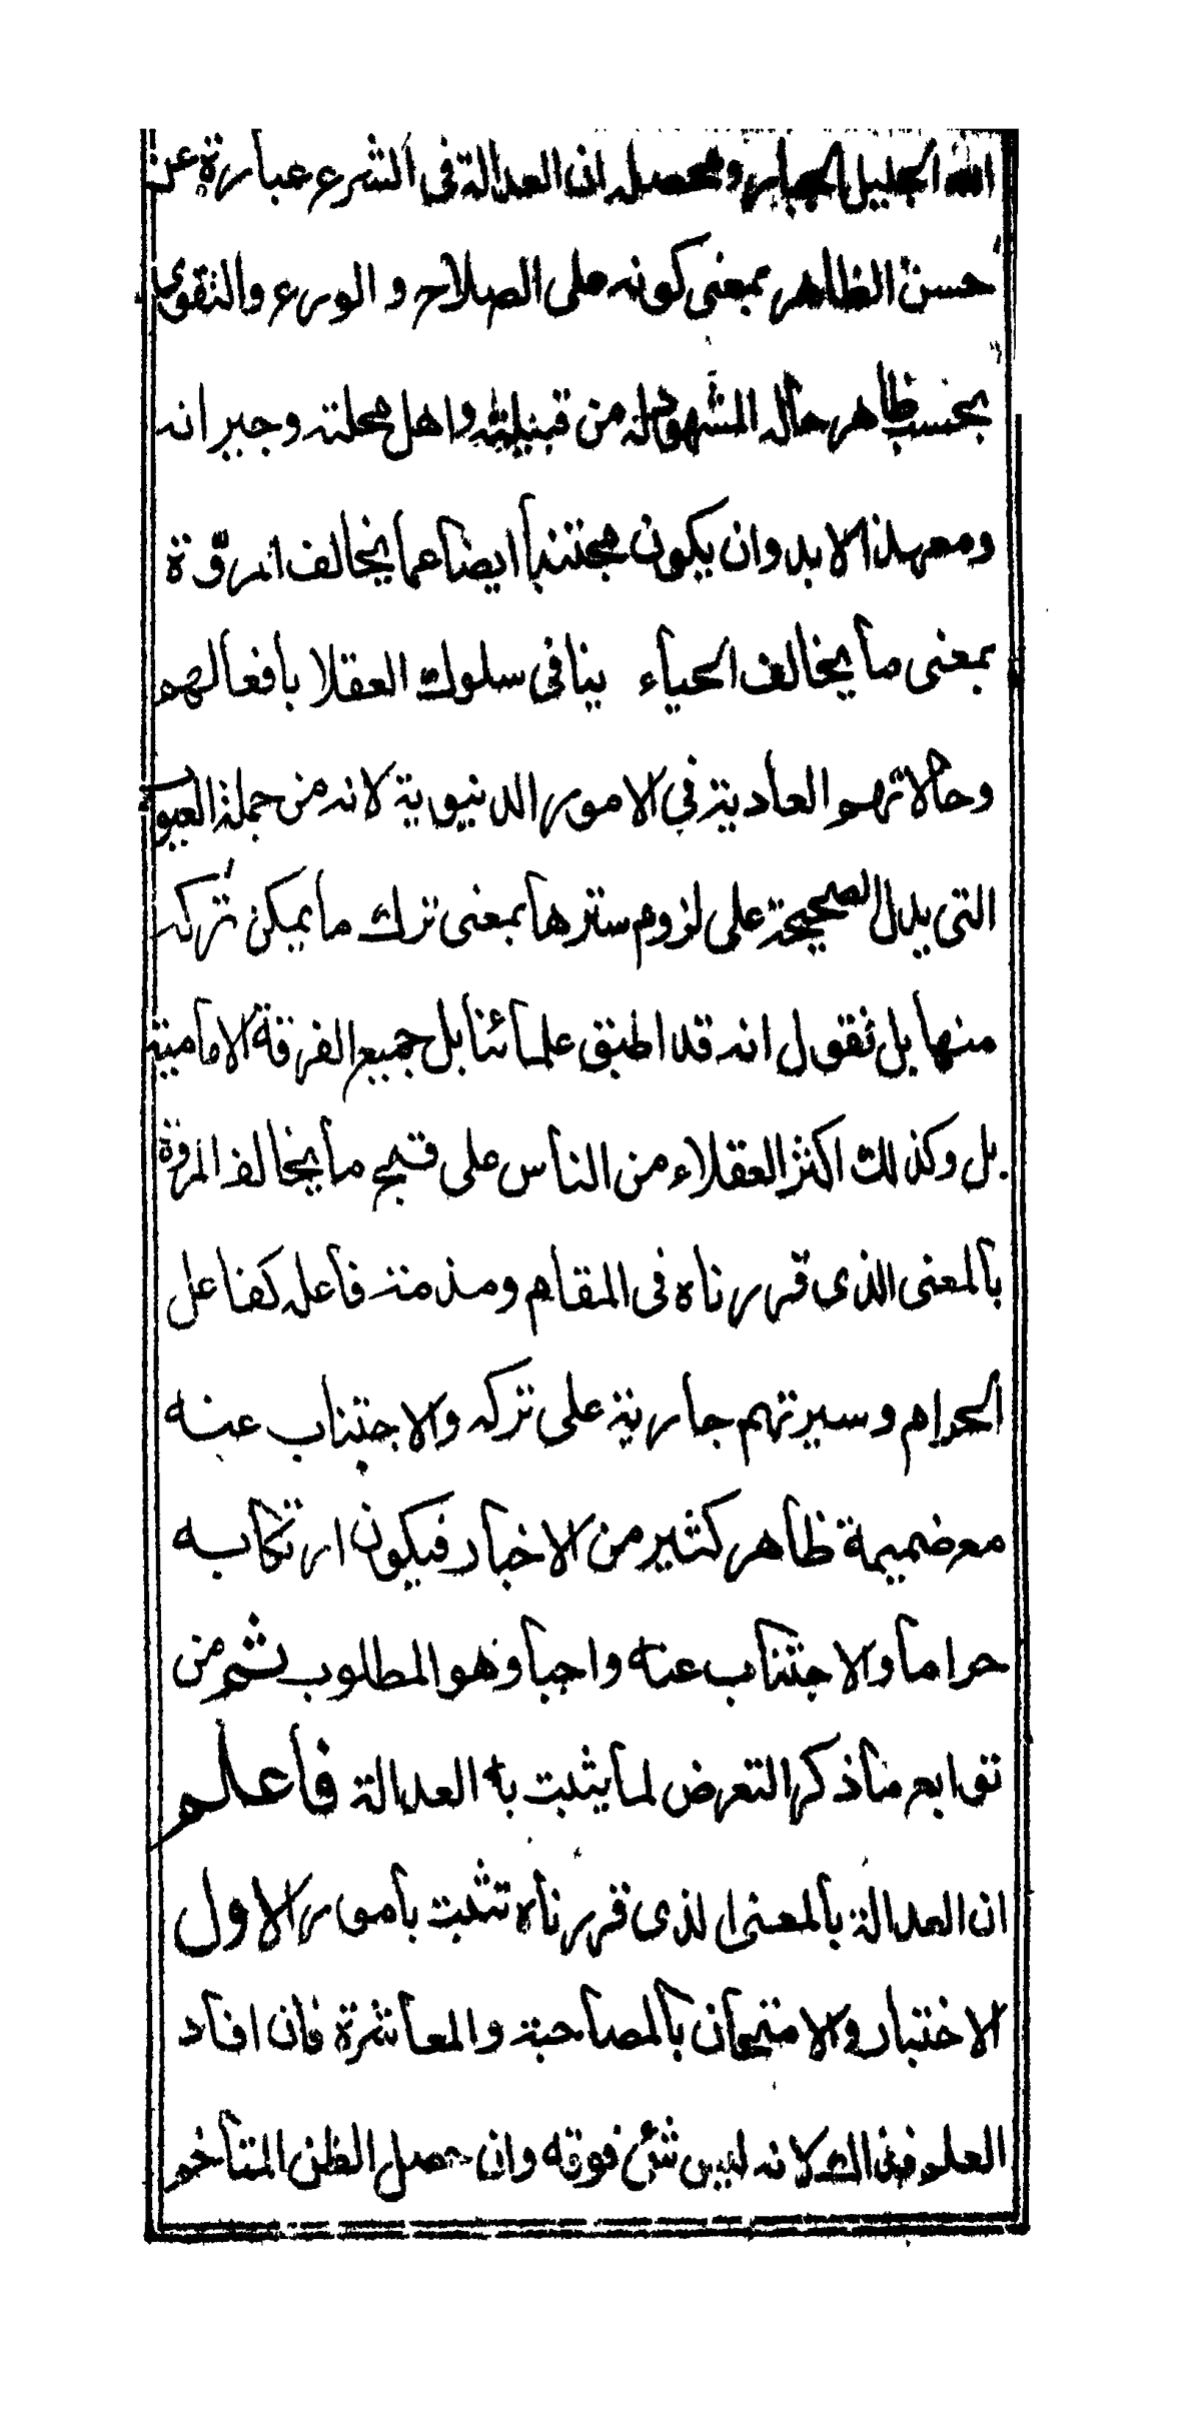 الله الجليل الجبار ومحصله ان العدالة فى الشرع عبارة عن
حسن الظاهر بمعنى كونه على الصلاح و الورع والتقوى
بحسب ظاهر حاله المشهود له من قبيلته واهل محلته وجيرانه
ومعهذا لا بد وان يكون مجتنبا ايضا عما يخالف المروّة
بمعنى ما يخالف الحياء ينافى سلوك العقلا بافعالهم
وحالاتهم العادية في الامور الدنيوية لانه من جملة العيوب
التى يدل الصحيحة على لزوم سترها بمعنى ترك ما يمكن تركه
منها بل نقول انه قد اطبق علمائنا بل جميع الفرقة الامامية
بل وكذلك اكثر العقلاء من الناس على قبح ما يخالف المروة
بالمعنى الذى قررناه فى المقام ومذمة فاعله كفاعل
الحرام وسيرتهم جارية على تركه والاجتناب عنه
مع ضميمة ظاهر كثير من الاخبار فيكون ارتكابه
حراما والاجتناب عنه واجبا وهو المطلوب ثم من
توابع ما ذكر التعرض لما يثبت به العدالة فاعلم
ان العدالة بالمعنى الذى قررناه تثبت بامور الاول
الاختبار والامتحان بالمصاحبة والمعاشرة فان افاد
العلم فذالك لانه ليس شئ فوقه وان حصل الظن المتاخم